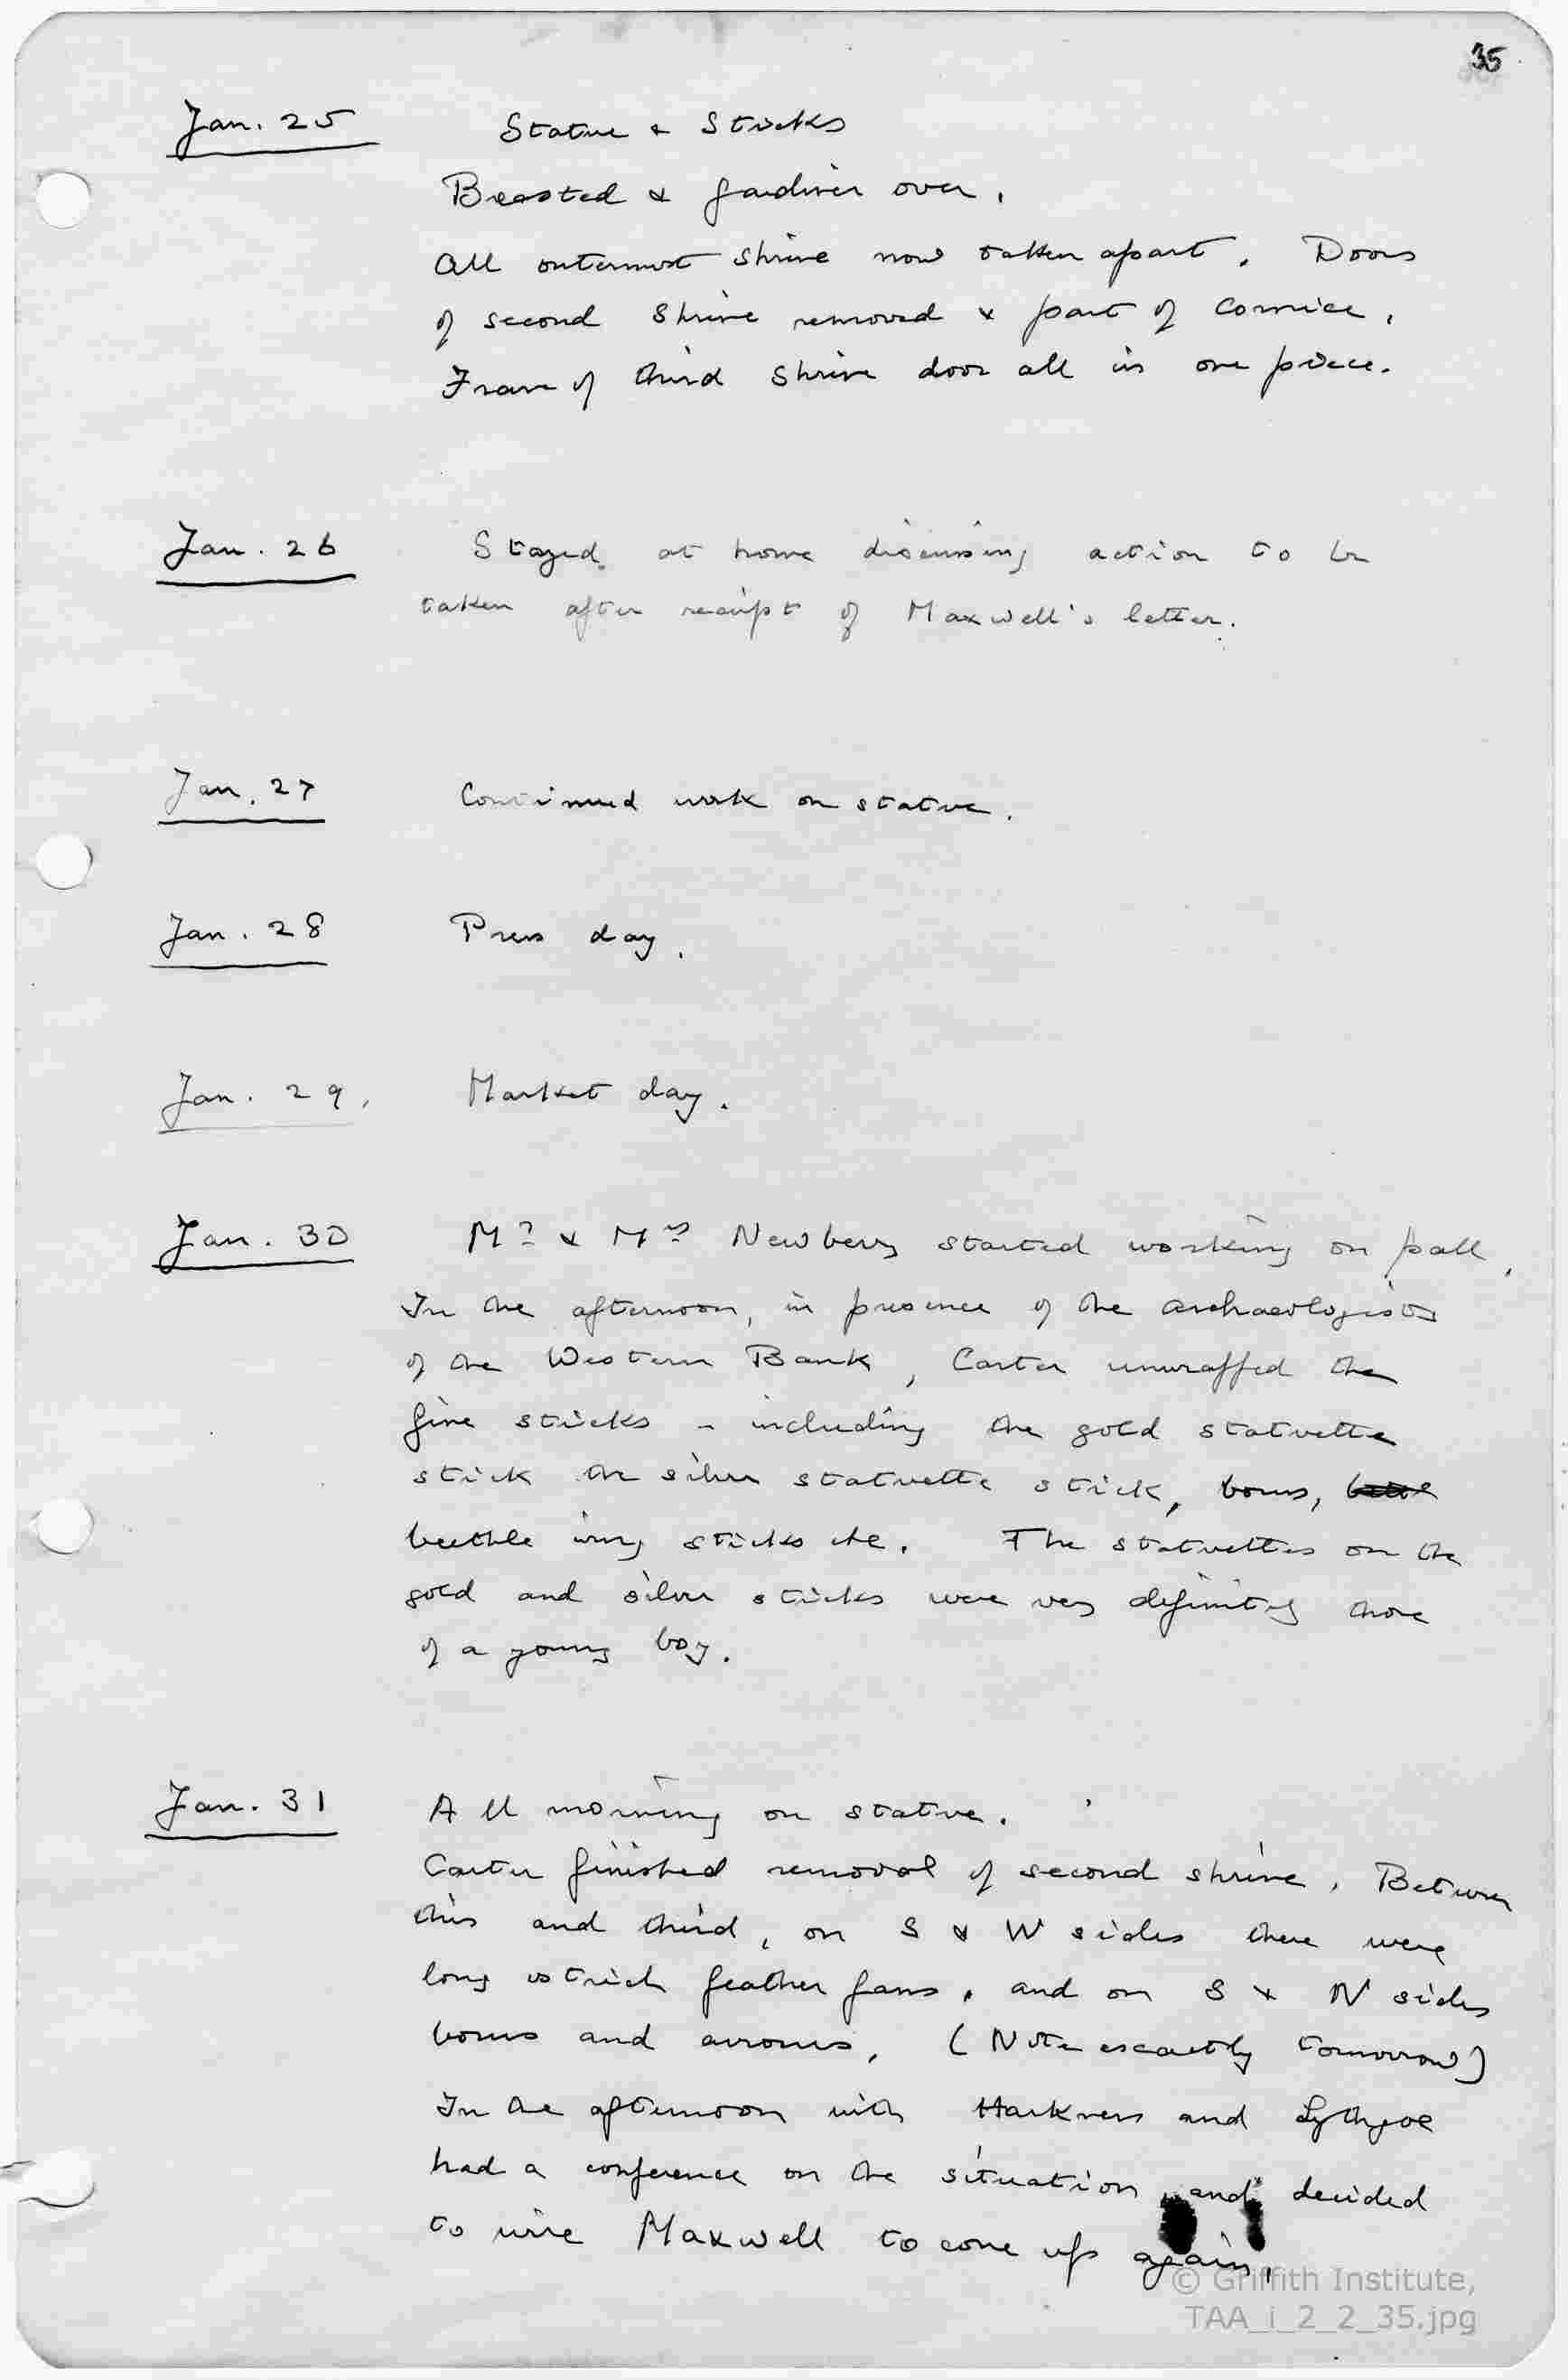 35
Jan. 25 Statue & Sticks
Breasted & Gardiner over.
All outermost shrine now taken apart. Doors
of second shrine removed & part of cornice.
Frame of third shrine door all in one piece.
Jan. 26 Stayed at home discussing action to be
taken after receipt of Maxwell's letter.
Jan. 27 Continued work on statue.
Jan. 28 Press day.
Jan. 29. Market day.
Jan. 30 Mr & Mrs Newberry started working on pall.
In the afternoon, in presence of the archaeologists
of the Western Bank, Carter unwrapped the
fine sticks - including the gold statuette
stick the silver statuette stick, bows,
beetle wing sticks etc. The statuettes on the
gold and silver sticks were very definitely those
of a young boy.
Jan. 31 All morning on statue.
Carter finished removal of second shrine. Between
this and third, on S & W sides there were
long ostrich feather fans, and on S & N sides
bows and arrows. (Note exactly tomorrow)
In the afternoon with Harkness and Lythgoe
had a conference on the situation and decided
to wire Maxwell to come up again.
© Griffith Institute,
TAA_i_2_2_35.jpg